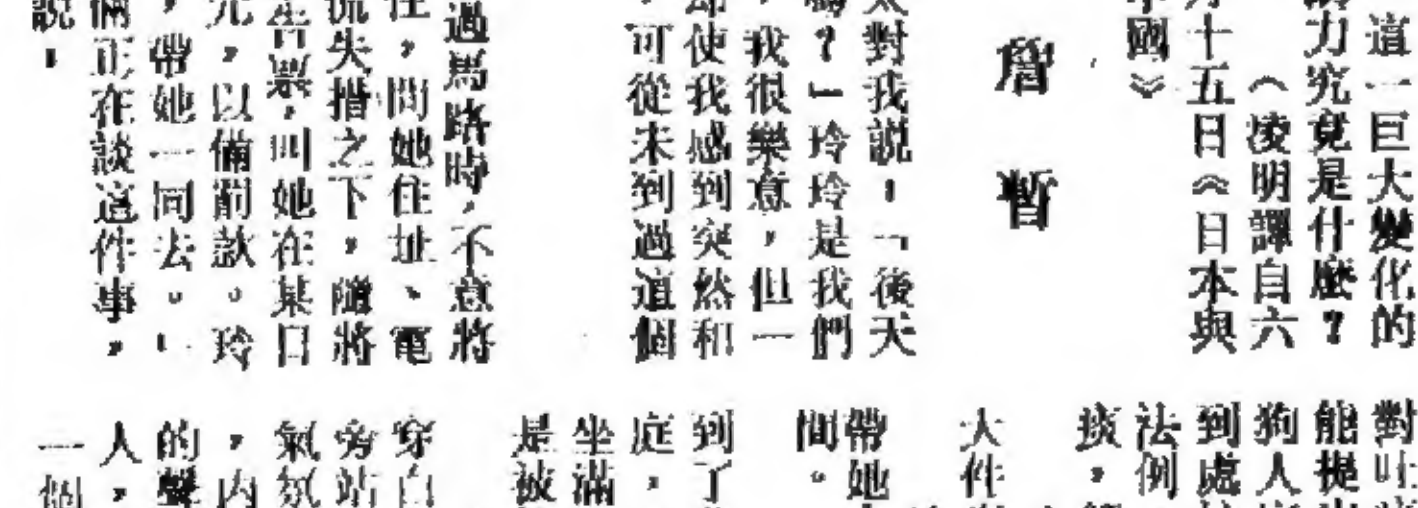 這一巨大變化的
力究竟是什麼？
（凌明譯自六
十五日《日本與
國》
層暫
對我説：「後天
？」玲玲是我們
，我很樂意，但一
却使我感到突然和
，可從未到過這個
過馬路時，不意將
住，問她住址、電
慌失措之下，隨將
告票，叫她在某日
元，以備罰款。玲
，帶她一同去。
倆正在談這件事，
説：
對吐
能提
狗人
到處
法例
痰，
大件
帶她
間。
到了
庭，
坐滿
是被
穿白
旁站
氣氛
，內
的聲
人，
一個